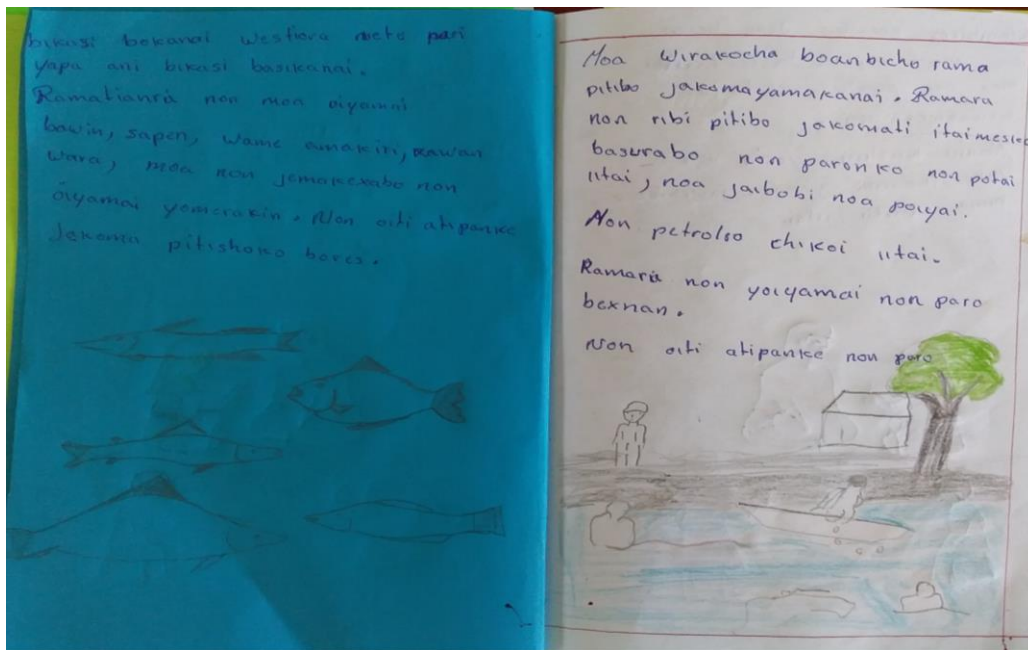 bikasi bokanai westiora nete pari
yapa ani bikasi basikanai.
Ramatianria non moa oiyamai
bawin, sapen, wame amakiri, kawan
wara, moa non jemakexabo non
oiyamai yomerakin. Non oiti atipanke
Jekoma pitishoko bores.
Moa wirakocha boanbicho rama
pitibo jakomayamakanai. Ramara
non ribi pitibo jakomati itai
basurabo non paronko non potai
iitai, noa jaibobi noa poiyai.
Non petrolso chikoi iitai.
Ramaria non yoiyamai non paro
bexnan.
Non oiti atipanke non paro